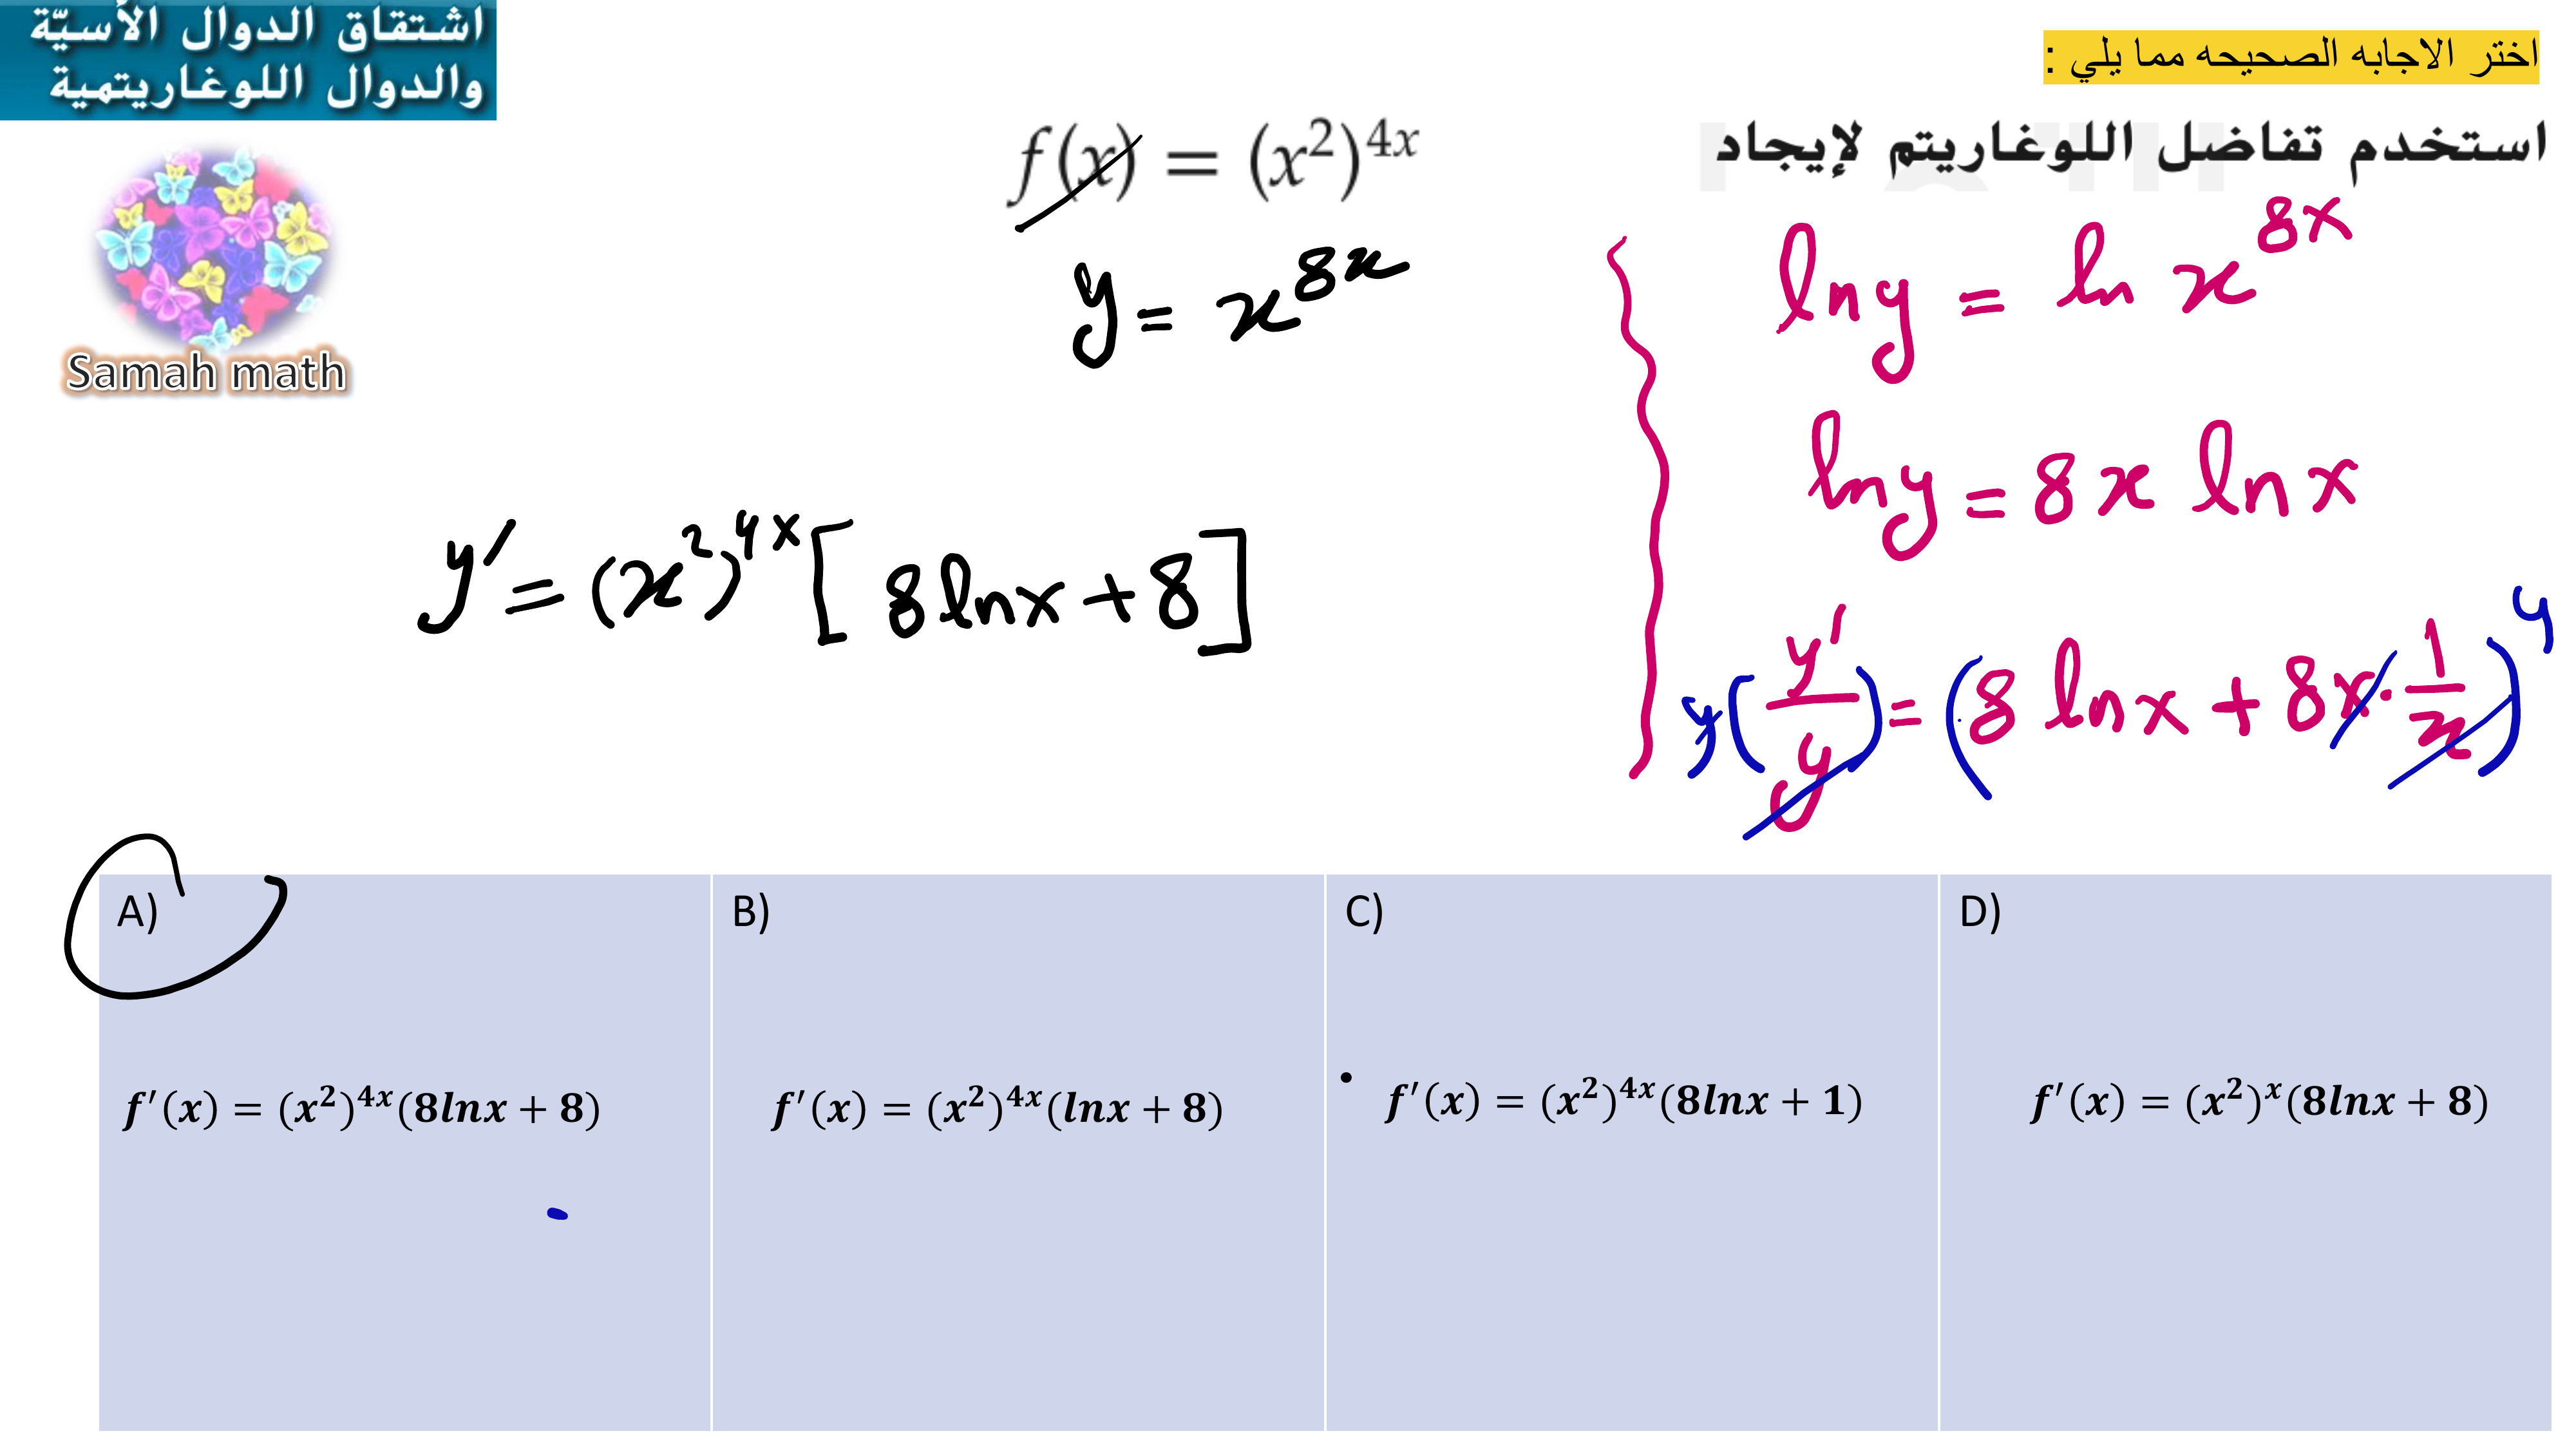 اشتقاق الدوال الأسيّة
والدوال اللوغاريتمية
اختر الاجابه الصحيحه مما يلي :
استخدم تفاضل اللوغاريتم لإيجاد
f(x) = (x²)⁴ˣ
Samah math
y = x⁸ˣ
ln y = ln x⁸ˣ
ln y = 8x ln x
y(y'/y) = (8 ln x + 8x · 1/x) y
y' = (x²)⁴ˣ [ 8 ln x + 8 ]
A)
f′(x) = (x²)⁴ˣ(8lnx + 8)
B)
f′(x) = (x²)⁴ˣ(lnx + 8)
C)
• f′(x) = (x²)⁴ˣ(8lnx + 1)
D)
f′(x) = (x²)ˣ(8lnx + 8)